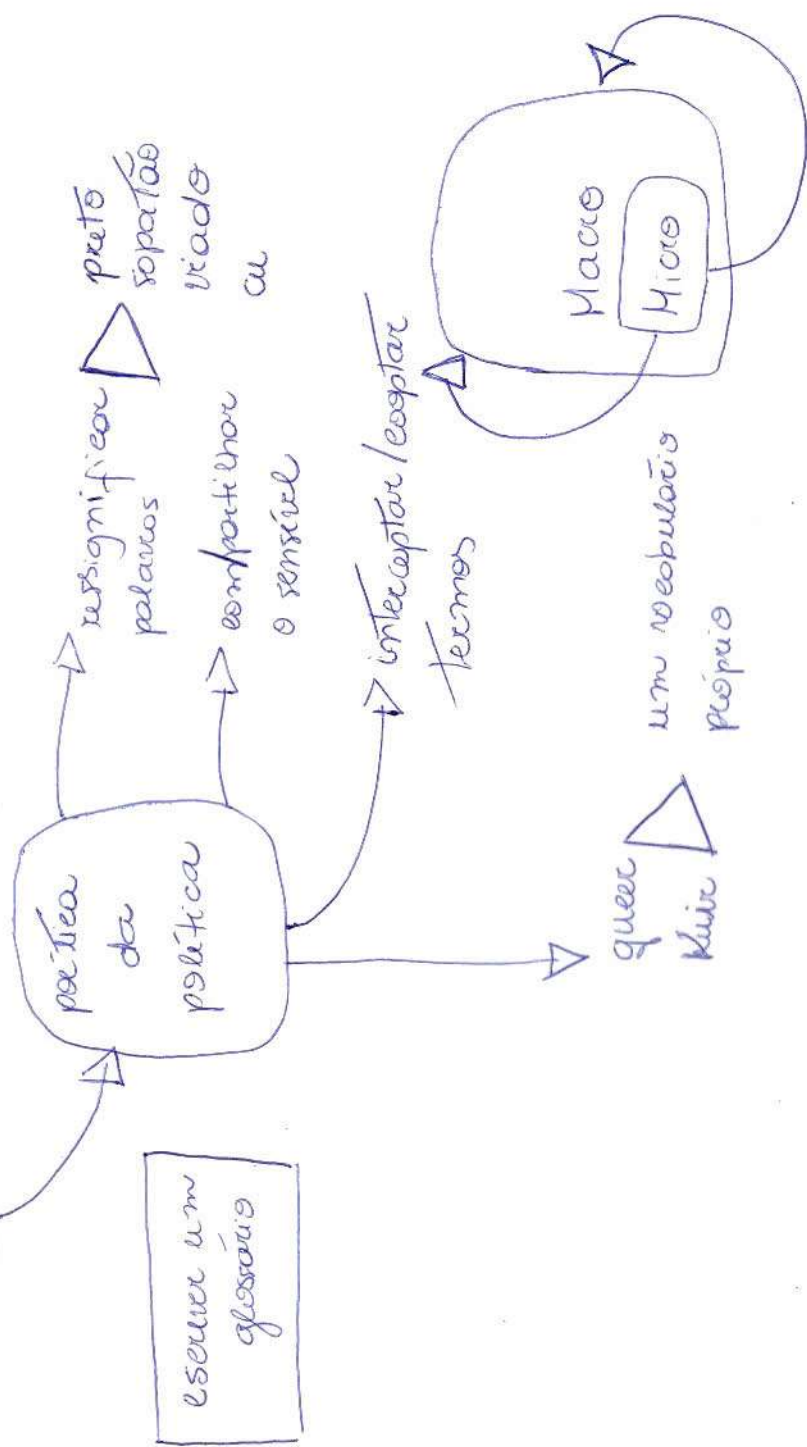 escrever um
glossário
poética
da
política
ressignificar
palavras
preto
sapatão
viado
cu
com/partilhar
o sensível
interceptar/cooptar
termos
Macro
Micro
queer
Kuir
um vocabulário
próprio